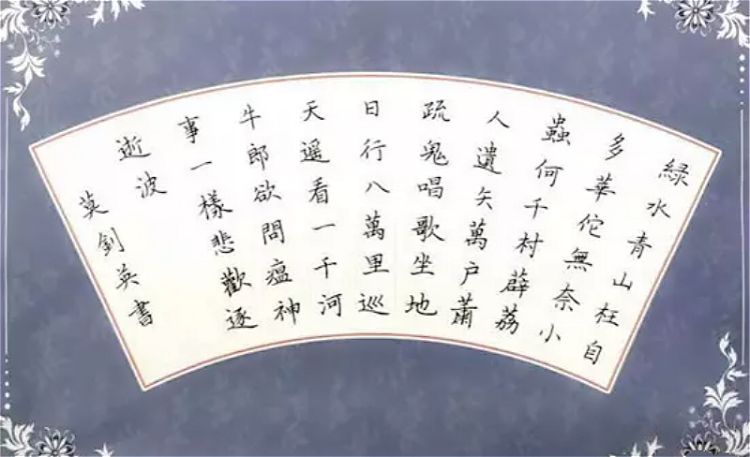 綠水青山枉自
多華佗無奈小
蟲何千村薜荔
人遺矢萬户蕭
疏鬼唱歌坐地
日行八萬里巡
天遥看一千河
牛郎欲問瘟神
事一樣悲歡逐
逝波
莫釗英書